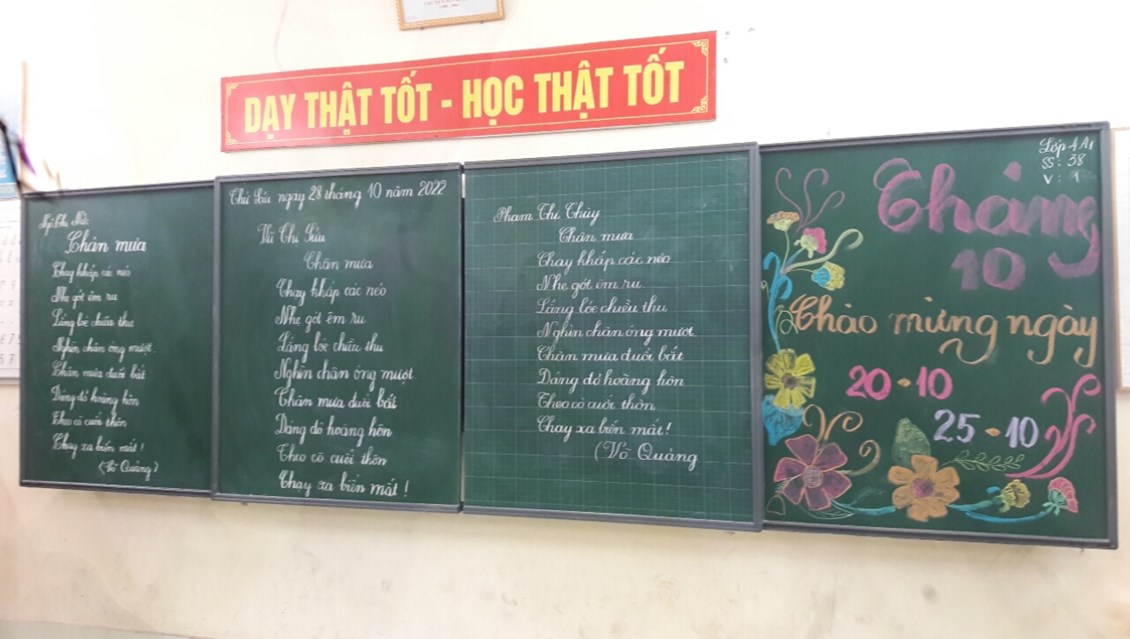 DẠY THẬT TỐT - HỌC THẬT TỐT
Chân mưa
Chạy khắp cá néo
Nhẹ gót êm ru
Lắng lóc chiều thu
Nghìn chân óng mượt
Chân mưa dưới bất
Dáng đỏ hoàng hôn
Theo cỏ cuối thôn
Chạy xa biến mất!
(Võ Quảng)
Thứ Sáu ngày 28 tháng 10 năm 2022
Vũ Thị Sửu
Chân mưa
Chạy khắp các nẻo
Nhẹ gót êm ru
Lắng lóc chiều thu
Nghìn chân óng mượt
Chân mưa dưới bất
Dáng đỏ hoàng hôn
Theo cỏ cuối thôn
Chạy xa biến mất!
Phạm Thị Thùy
Chân mưa
Chạy khắp các nẻo
Nhẹ gót êm ru
Lắng lóc chiều thu
Nghìn chân óng mượt
Chân mưa dưới bất
Dáng đỏ hoàng hôn
Theo cỏ cuối thôn
Chạy xa biến mất!
(Võ Quảng
Lớp 4A1
SS: 38
V: 1
Tháng
10
Chào mừng ngày
20-10
25-10